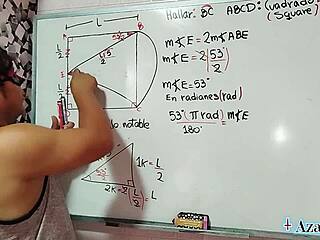 L
Hallar: BC ABCD: Cuadrado
(Square)
B
53°
2
L
2
E
L√5
2
L
2
m∡E = 2m∡ABE
m∡E = 2(53°/2)
m∡E = 53°
En radianes(rad)
53°(π rad)/180° = m∡E
notable
1K = L/2
53°/2
2K = 2(L/2) = L
Aza